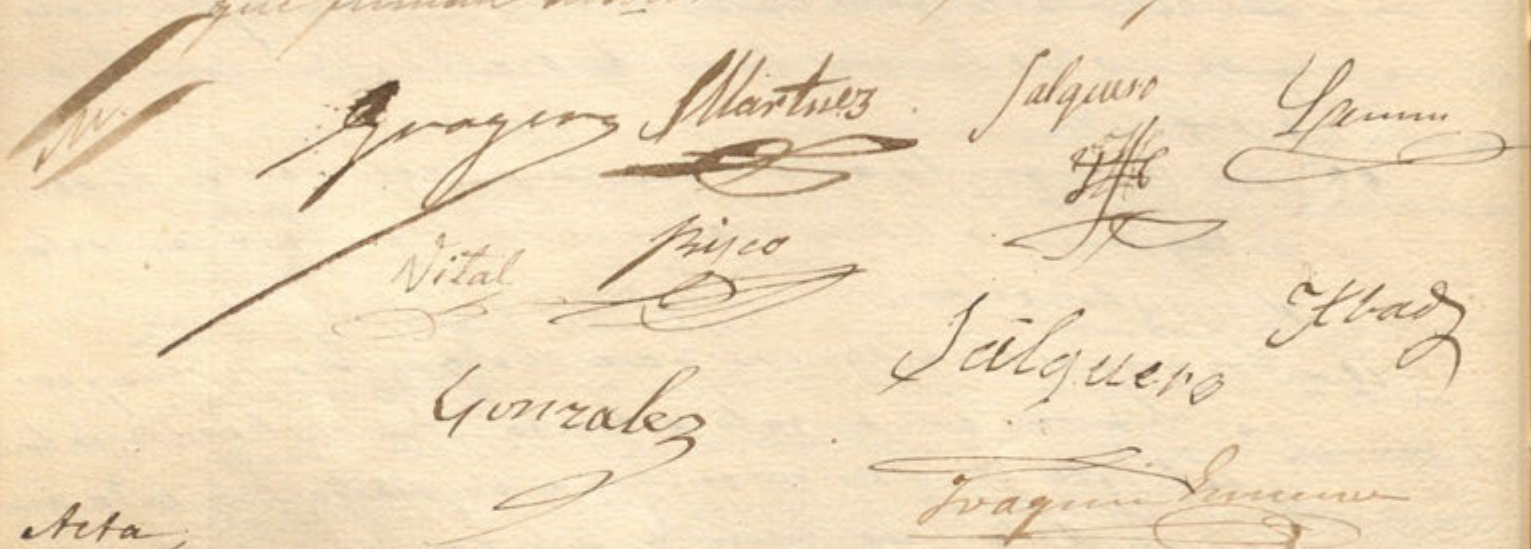 que firman
Gragera Martinez Salguero
Vital Risco
Salguero Abad
Gonzalez
Joaquin
Acta,